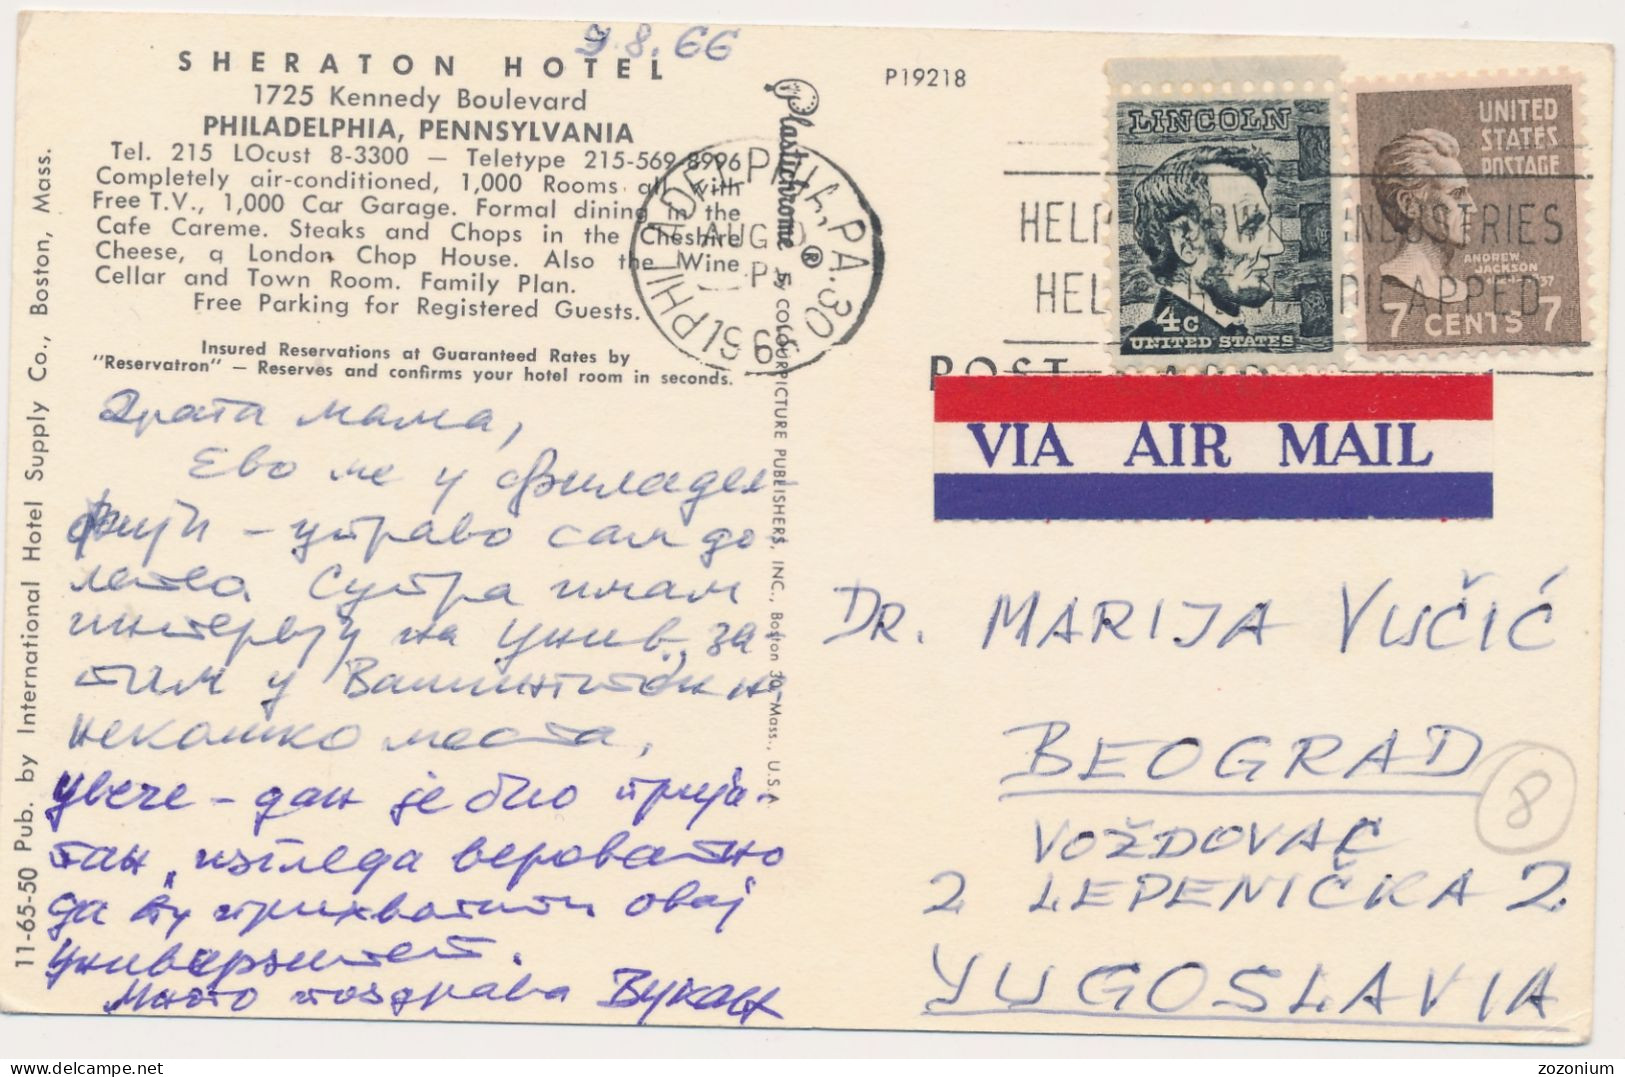 9.8.66
SHERATON HOTEL
1725 Kennedy Boulevard
PHILADELPHIA, PENNSYLVANIA
Tel. 215 LOcust 8-3300 — Teletype 215-569 8996
Completely air-conditioned, 1,000 Rooms all with
Free T.V., 1,000 Car Garage. Formal dining in the
Cafe Careme. Steaks and Chops in the Cheshire
Cheese, a London Chop House. Also the Wine
Cellar and Town Room. Family Plan.
Free Parking for Registered Guests.
Insured Reservations at Guaranteed Rates by
"Reservatron" — Reserves and confirms your hotel room in seconds.
11-65-50 Pub. by International Hotel Supply Co., Boston, Mass.
Драга мама,
Ево ме у Филадел-
фији – управо сам до-
летео. Сутра имам
интервју на Унив., за
тим у Вашингтону и
неколико места,
увече – дан је био прија-
тан, изгледа вероватно
да ћу прихватити овај
Универзитет.
Много поздрава Вукан
Plastichrome ® by COLOURPICTURE PUBLISHERS, INC., Boston 30, Mass., U.S.A.
P19218
PHILADELPHIA, PA. 30
AUG
LINCOLN
4c
UNITED STATES
UNITED
STATES
POSTAGE
ANDREW
JACKSON
7 CENTS 7
HELP INDUSTRIES
HELP HANDICAPPED
POST CARD
VIA AIR MAIL
DR. MARIJA VUČIĆ
BEOGRAD
VOŽDOVAC
2 LEPENIČKA 2
YUGOSLAVIA
8
zozonium